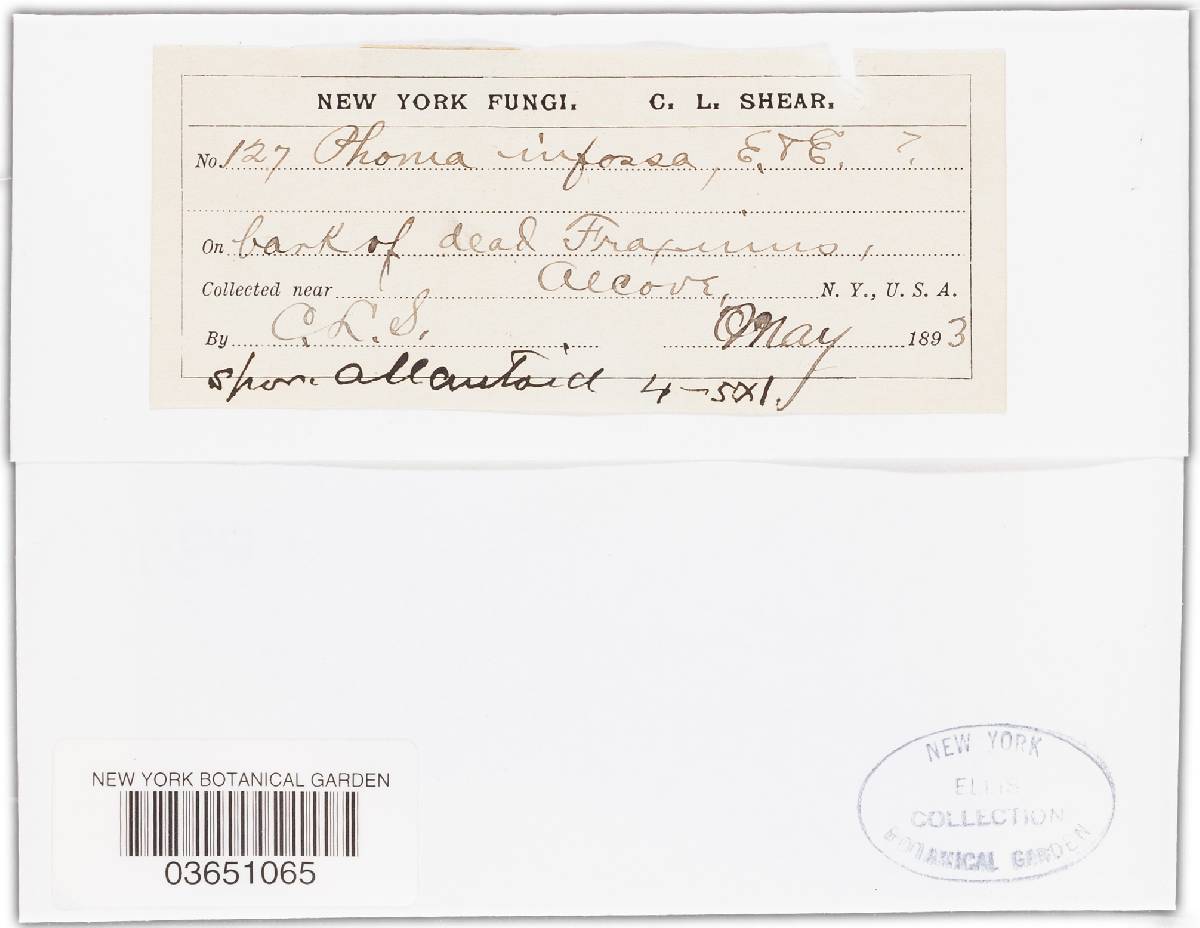 NEW YORK FUNGI. C. L. SHEAR.
No. 127 Phoma infossa, E. & E. ?
On bark of dead Fraxinus,
Collected near Alcove, N. Y., U. S. A.
By C. L. S. May 1893
spor. allantoid 4–5x1.
NEW YORK BOTANICAL GARDEN
03651065
NEW YORK
ELLIS
COLLECTION
BOTANICAL GARDEN